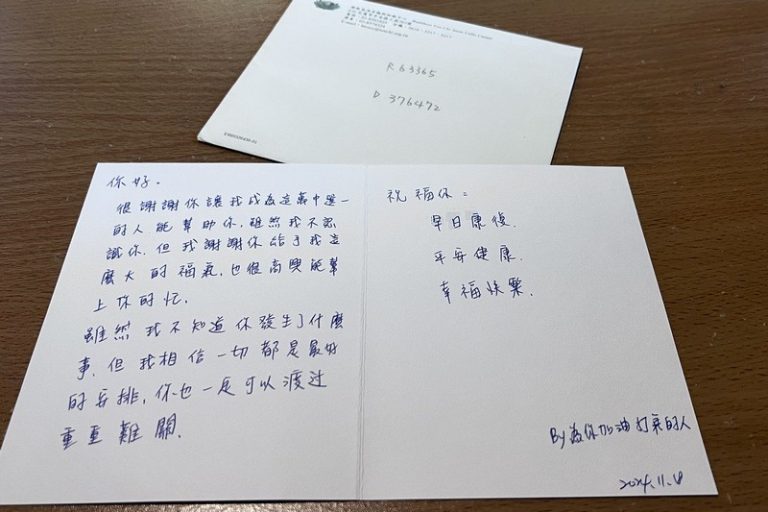 R 63365
D 376472
你好。
很謝謝你讓我成為這萬中選一
的人能幫助你，雖然我不認
識你，但我謝謝你給予我這
麼大的福氣，也很高興能幫
上你的忙。
雖然我不知道你發生了什麼
事，但我相信一切都是最好
的安排，你也一定可以渡过
重重難關。
祝福你：
早日康復．
平安健康．
幸福快樂．
By為你加油打氣的人
2024.11.18